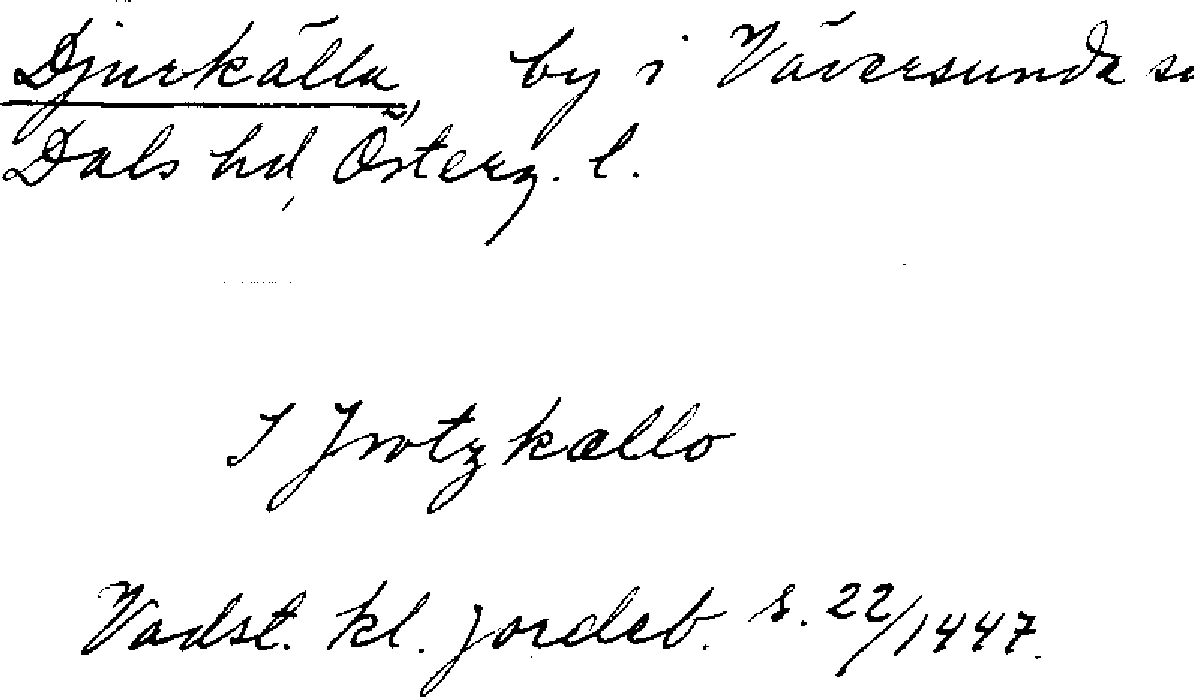 Djurkälla, by i Väversunda s
Dals hd, Österg. l.
I Jrotzkællo
Vadst. kl. jordeb. s. 22/1447.